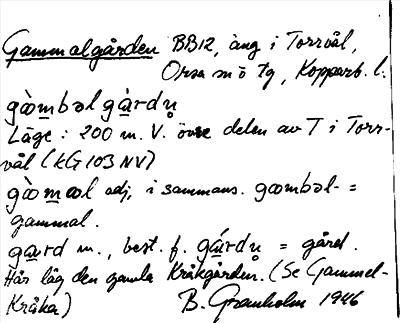 Gammalgården BB12, äng i Torrvål,
Orsa sn ö tg, Kopparb. l.
gòombəl gàrdn̥
Läge: 200 m. V. övre delen av T i Torr-
vål (kG 103 NV)
gòomœl adj, i sammans. goombəl- =
gammal.
gard m., best. f. gárdn̥ = gård.
Här låg den gamla Kråkgården. (Se Gammel-
Kråka) B. Granholm 1946